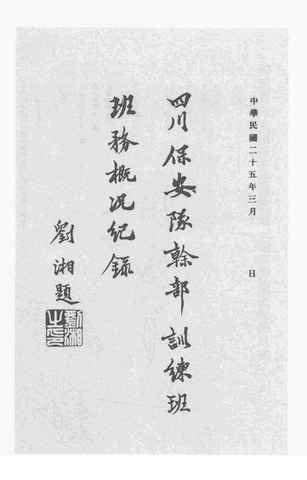 中華民國二十五年三月　日
四川保安隊幹部訓練班
班務概況紀錄
劉湘題
劉湘之印